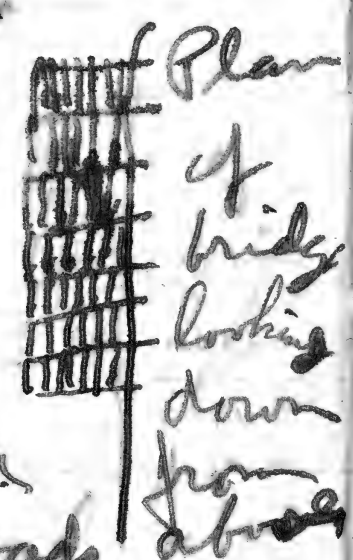 Plan
of
bridge
looking
down
from
above